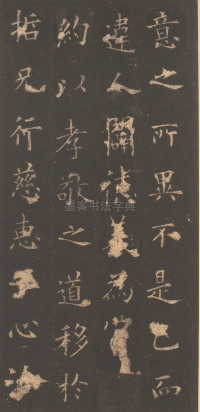 意之所異不是己而
違人聞德義為
約以孝敬之道移於
哲兄行慈惠心
墨客书法字典